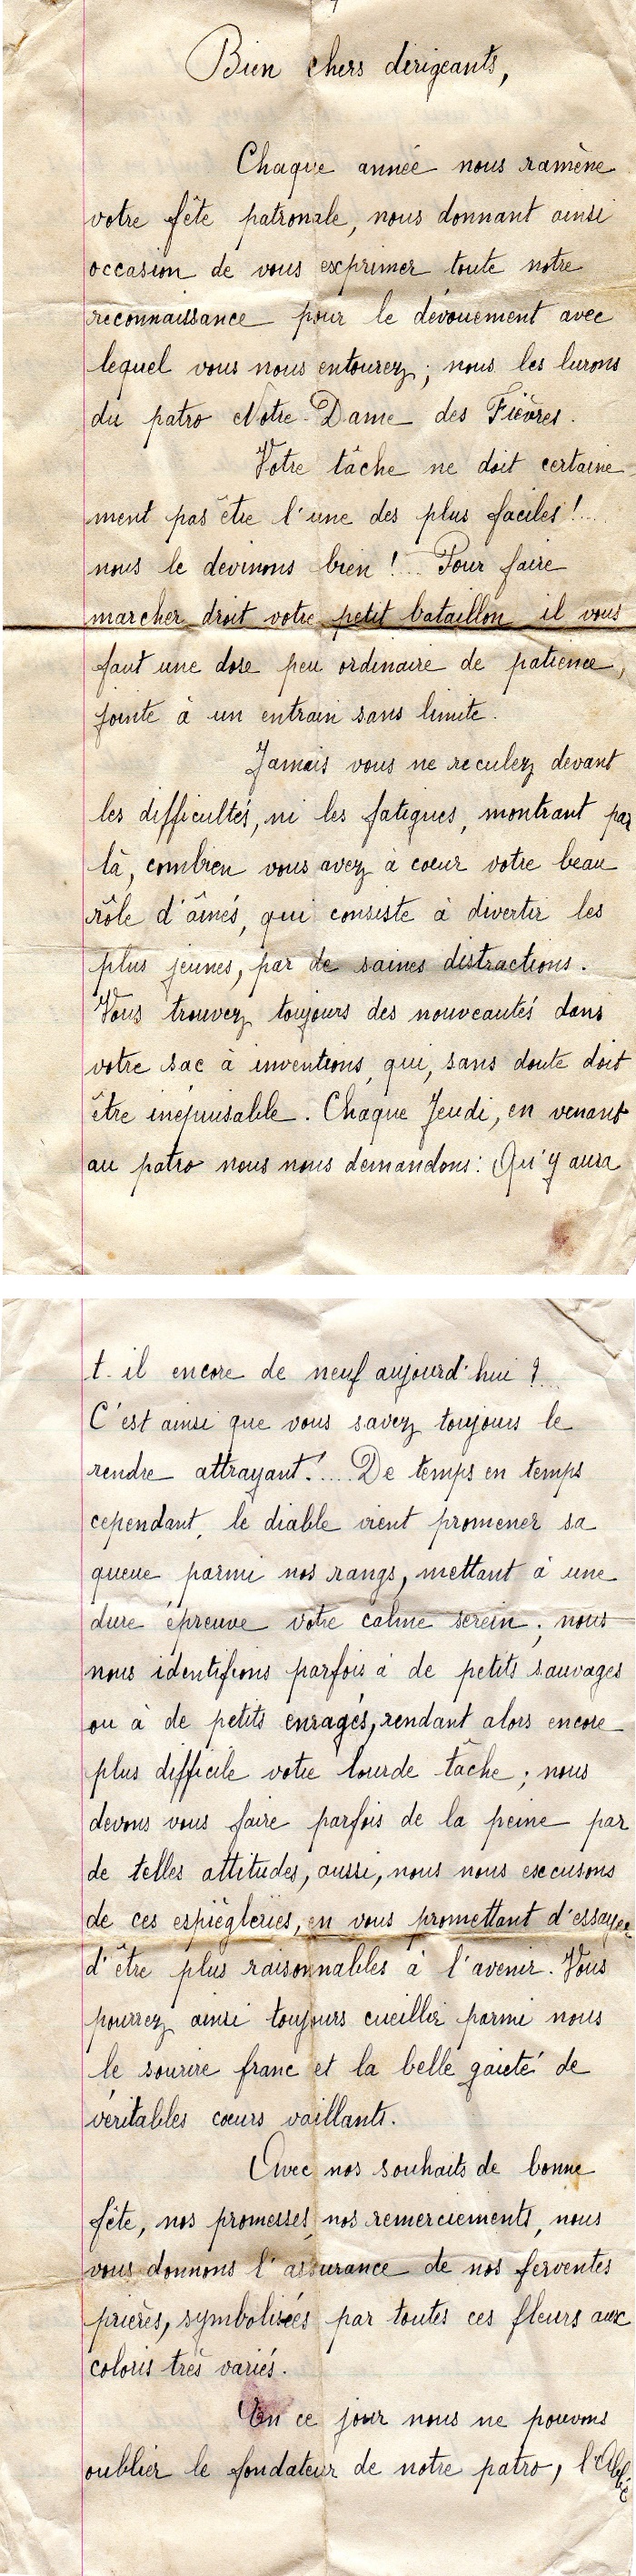 Bien chers dirigeants,
Chaque année nous ramène
votre fête patronale, nous donnant ainsi
occasion de vous exprimer toute notre
reconnaissance pour le dévouement avec
lequel vous nous entourez ; nous les lurons
du patro Notre-Dame des Fièvres.
Votre tâche ne doit certaine-
ment pas être l'une des plus faciles !...
nous le devinons bien !... Pour faire
marcher droit votre petit bataillon il vous
faut une dose peu ordinaire de patience,
jointe à un entrain sans limite.
Jamais vous ne reculez devant
les difficultés, ni les fatigues, montrant par
là, combien vous avez à coeur votre beau
rôle d'aînés, qui consiste à divertir les
plus jeunes, par de saines distractions.
Vous trouvez toujours des nouveautés dans
votre sac à inventions, qui, sans doute doit
être inépuisable. Chaque Jeudi, en venant
au patro nous nous demandons : Qu'y aura
t-il encore de neuf aujourd'hui ?...
C'est ainsi que vous savez toujours le
rendre attrayant !.... De temps en temps
cependant, le diable vient promener sa
queue parmi nos rangs, mettant à une
dure épreuve votre calme serein ; nous
nous identifions parfois à de petits sauvages
ou à de petits enragés, rendant alors encore
plus difficile votre lourde tâche ; nous
devons vous faire parfois de la peine par
de telles attitudes, aussi, nous nous excusons
de ces espiègleries, en vous promettant d'essayer
d'être plus raisonnables à l'avenir. Vous
pourrez ainsi toujours cueillir parmi nous
le sourire franc et la belle gaieté de
véritables cœurs vaillants.
Avec nos souhaits de bonne
fête, nos promesses, nos remerciements, nous
vous donnons l'assurance de nos ferventes
prières, symbolisées par toutes ces fleurs aux
coloris très variés.
En ce jour nous ne pouvons
oublier le fondateur de notre patro, l'Abbé